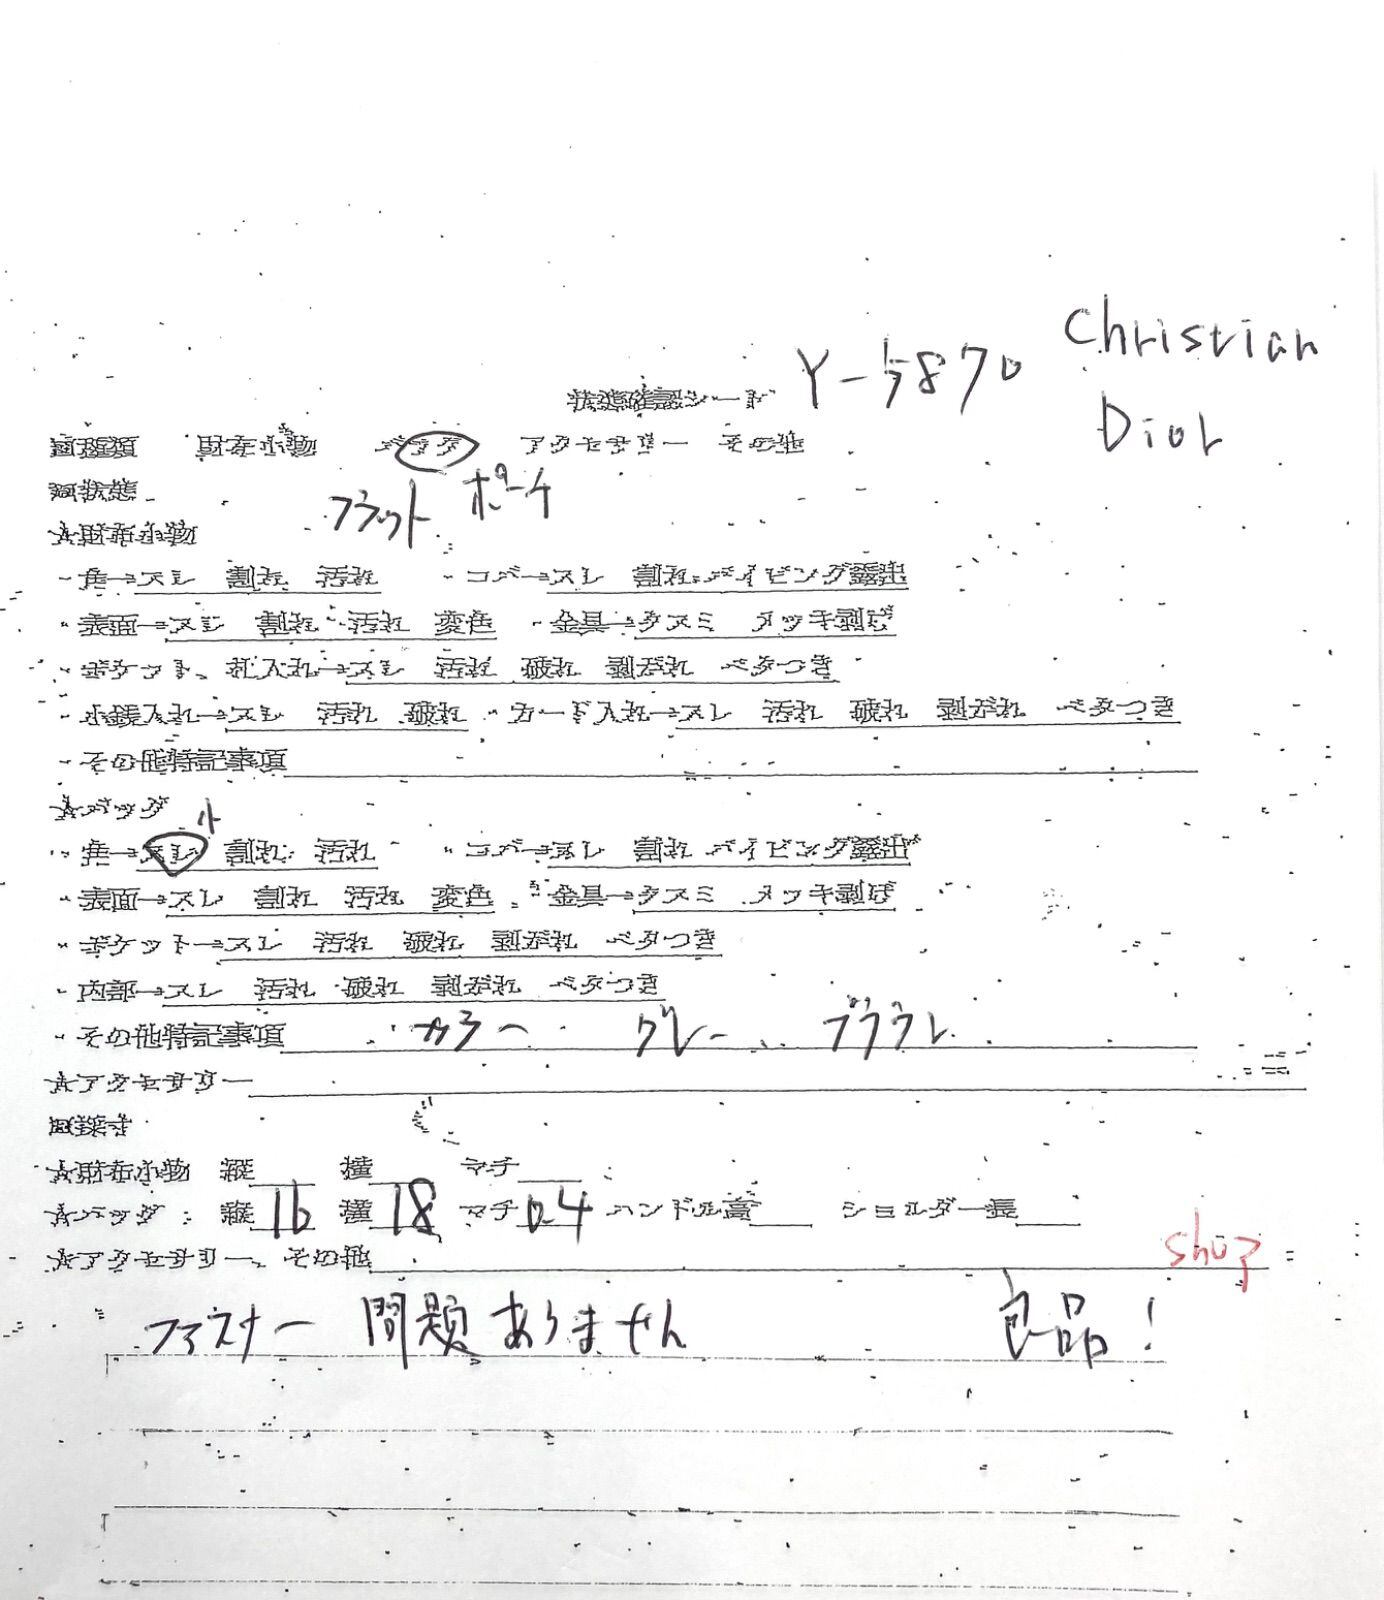 Christian
Y-5870
状態確認シート
Dior
■種類 財布小物 バッグ アクセサリー その他
■状態
フラット ポーチ
★財布小物
・角→スレ 割れ 汚れ ・コバ→スレ 割れ パイピング露出
・表面→スレ 割れ 汚れ 変色 ・金具→クスミ メッキ剥げ
・ポケット、札入れ→スレ 汚れ 破れ 剥がれ ベタつき
・小銭入れ→スレ 汚れ 破れ ・カード入れ→スレ 汚れ 破れ 剥がれ ベタつき
・その他特記事項
★バッグ
小
・角→スレ 割れ 汚れ ・コバ→スレ 割れ パイピング露出
・表面→スレ 割れ 汚れ 変色 ・金具→クスミ メッキ剥げ
・ポケット→スレ 汚れ 破れ 剥がれ ベタつき
・内部→スレ 汚れ 破れ 剥がれ ベタつき
・その他特記事項 カラー グレー ブラウン
★アクセサリー
■採寸
★財布小物 縦 横 マチ
★バッグ：縦16 横18 マチ0.4 ハンドル高 ショルダー長
★アクセサリー、その他
shop
ファスナー 問題ありません 良品！